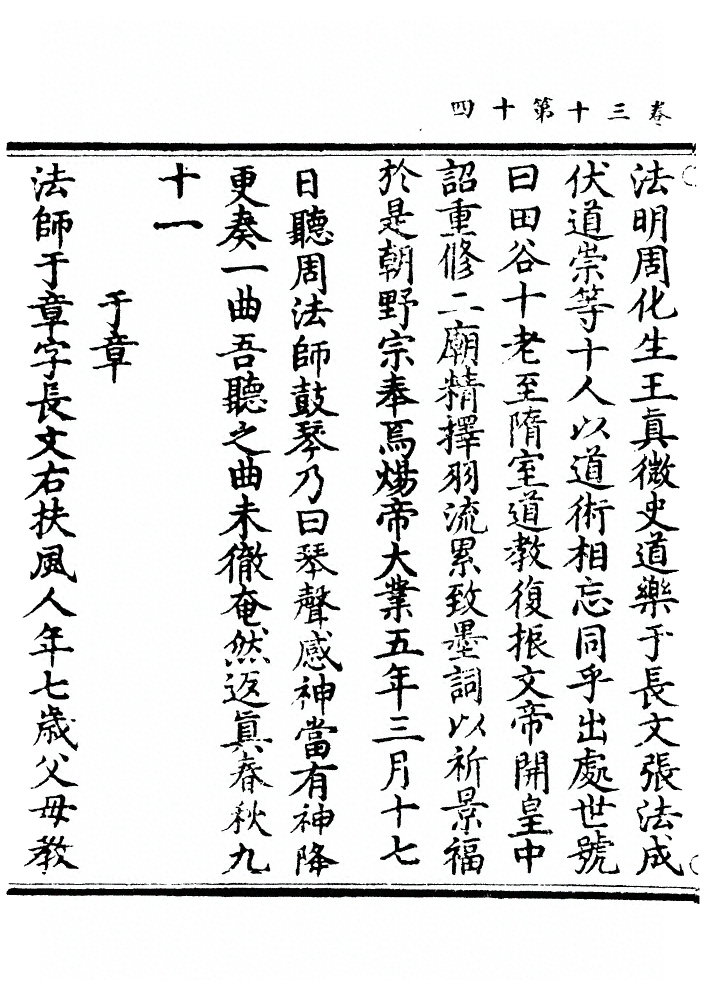 卷三十第十四
法明周化生王眞微史道樂于長文張法成
伏道崇等十人以道術相忘同乎出處世號
曰田谷十老至隋室道教復振文帝開皇中
詔重修二廟精擇羽流累致墨詞以祈景福
於是朝野宗奉焉煬帝大業五年三月十七
日聽周法師鼓琴乃曰琴聲感神當有神降
更奏一曲吾聽之曲未徹奄然返眞春秋九
十一
于章
法師于章字長文右扶風人年七歲父母教